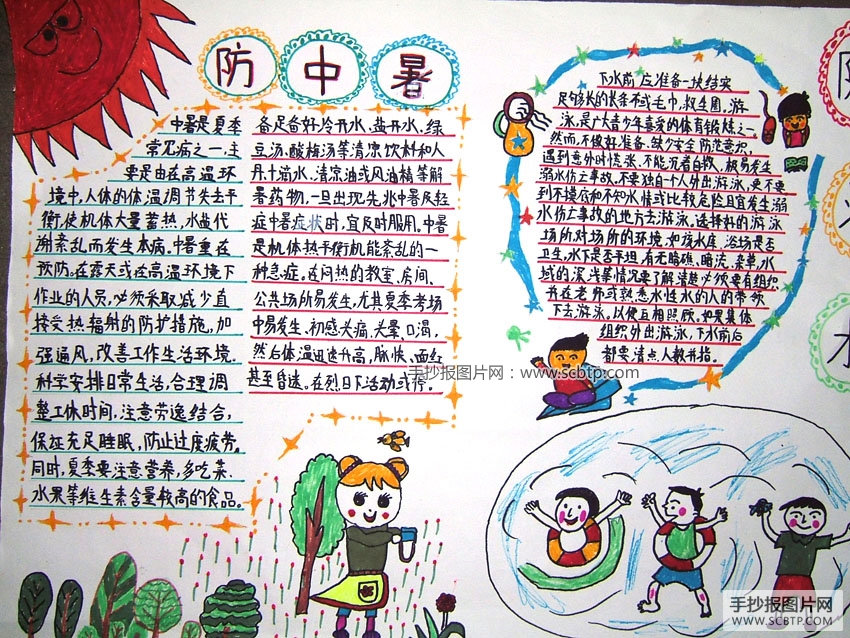 防中暑
中暑是夏季
常见病之一,主
要是由在高温环
境中,人体的体温调节失去平
衡,使机体大量蓄热,水盐代
谢紊乱而发生本病。中暑重在
预防。在露天或在高温环境下
作业的人员,必须采取减少直
接受热辐射的防护措施,加
强通风,改善工作生活环境.
科学安排日常生活,合理调
整工休时间,注意劳逸结合,
保证充足睡眠,防止过度疲劳。
同时,夏季要注意营养,多吃菜.
水果等维生素含量较高的食品。
备足备好冷开水、盐开水、绿
豆汤、酸梅汤等清凉饮料和人
丹十滴水、清凉油或风油精等解
暑药物,一旦出现先兆中暑及轻
症中暑症状时,宜及时服用。中暑
是机体热平衡机能紊乱的一
种急症。在闷热的教室、房间、
公共场所易发生,尤其夏季考场
中易发生、初感头痛、头晕、口渴,
然后体温迅速升高,脉快、面红
甚至昏迷。在烈日下活动或
下水前应准备一块结实
足够长的长条布或毛巾,救生圈,游
泳,是广大青少年喜爱的体育锻炼之一,
然而,不做好准备、缺少安全防范意识,
遇到意外时慌张、不能沉着自救、极易发生
溺水伤亡事故,不要独自个人外出游泳,更不要
到不摸底和不知水情或比较危险且宜发生溺
水伤亡事故的地方去游泳。选择好的游泳
场所,对场所的环境,如该水库、浴场是否
卫生,水下是否平坦,有无暗礁、暗流、杂草,水
域的深浅等情况要了解清楚。必须要有组织
并在老师或熟悉水性的人的带领
下去游泳。以便互相照顾。如果集体
组织外出游泳,下水前后
都要清点人数并指。
手抄报图片网：www.scbtp.com
手抄报图片网
WWW.SCBTP.COM